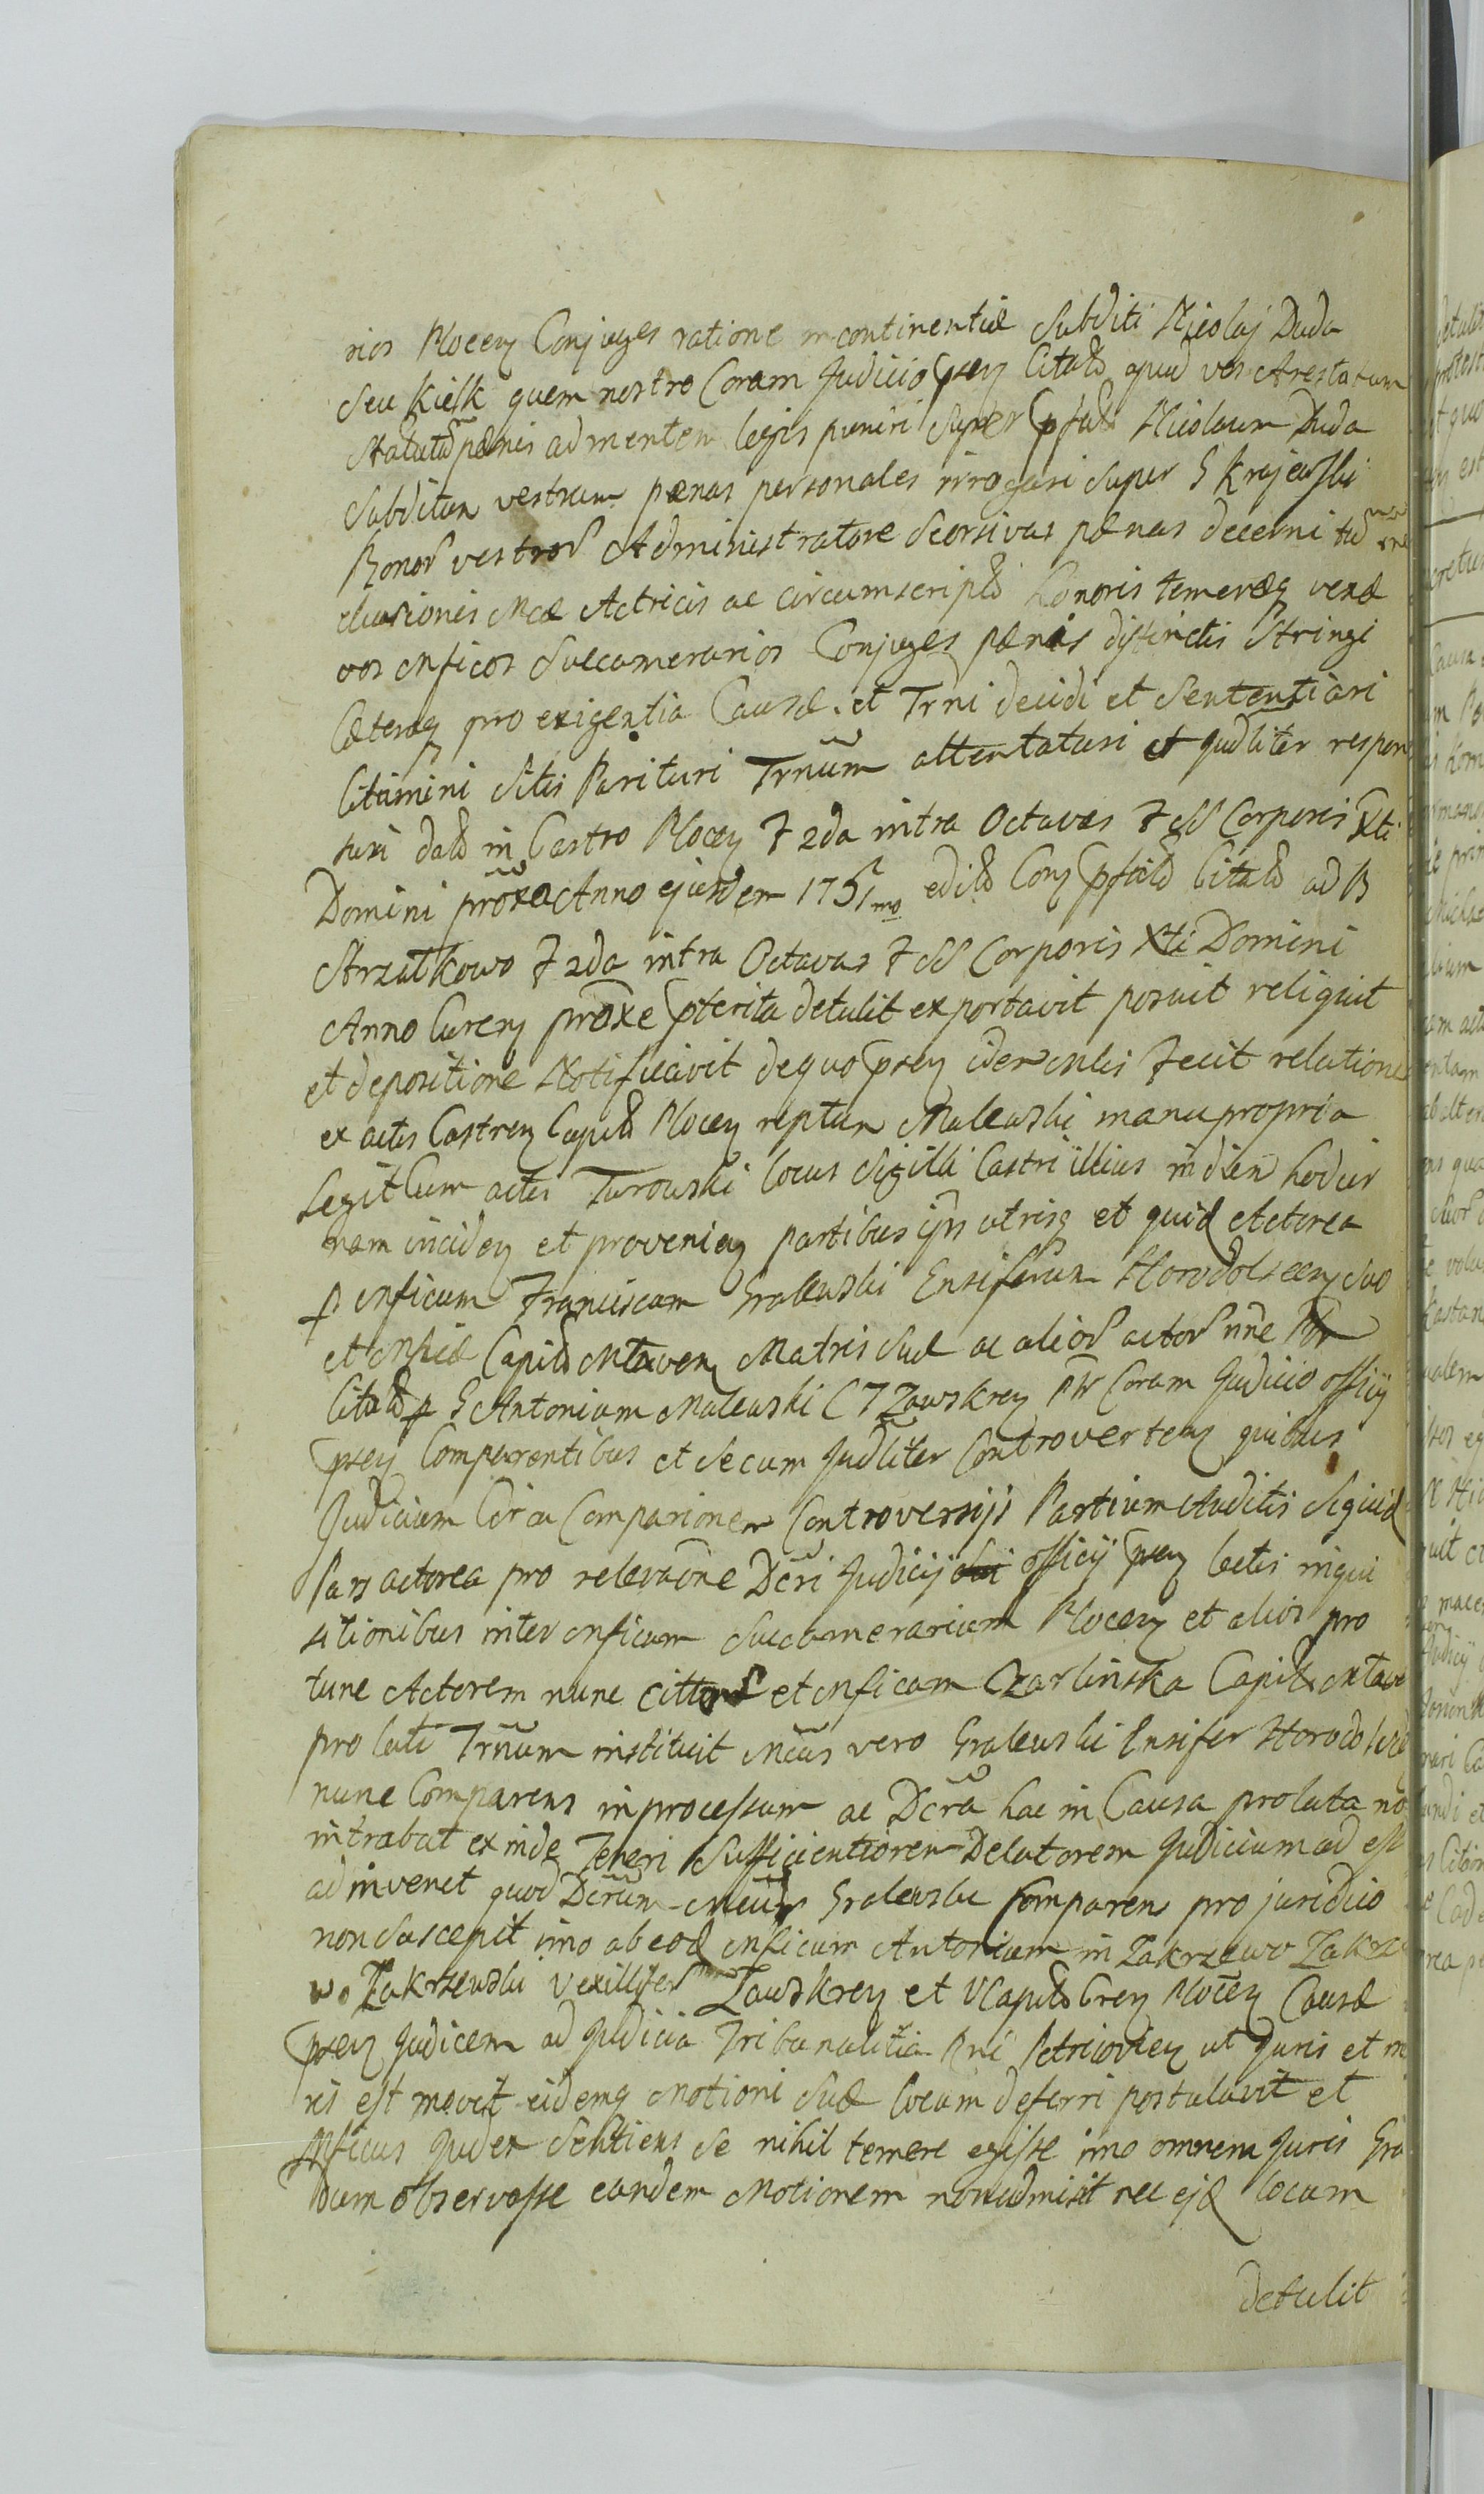 rios Plocen Conjuges ratione incontinentiæ Subditi Nicolaj Duda
Seu Kiełk quem nostro Coram Judicio pñen Citatõ apud vos Arestatum
Statutõ pænis ad mentem legis puniri Super pfatõ Nicolaum Duda
Subditum vestrum pænas personales irrogari Super G Krajewski
Bonor vestror Administratore Seorsivas pænas decerni
elusionis Mcæ Actricis ac circumscriptõ honoris temereq vexæ
vos Mficos Succamerarios Conjuges pænis distinctis Stringi
Cæteraq pro exigentia Causæ et Trni decidi et Sententiari
Citamini Sitis Parituri Trnũm attentaturi et Judliter respon
suri datõ in Castro Plocen F 2da intra Octavas F SS Corporis Xti
Domini prõxa Anno ejusdem 1751mo editõ Cong pfatõ Citatõ ad B
Strzałkowo F 2da intra Octavas F SS Corporis Xti Domini
Anno Curen prõxe pterita detulit exportavit posuit reliquit
et depositione Notificavit de quo pñen idem Mlis Fecit relatione
ex actis Castren Capitõ Plocen reptum Malewski manu propria
Legit Cum actis Turowski locus Sigilli Castri illius in diem hodier
nam inciden et provenien partibus ijs utrisq et quidẽ Actorea
p Mficum Franciscum Gralewski Ensiferum Horodolscen Suo
et Mficæ Capitõ Mlaven Matris Suæ ac alior actor nñe
Citatõ p G Antonium Malewski C T Zawskren PW Coram Judicio officij
pñen Comparentibus et Secum Judliter Controverten quibus
Judicium Circa Comparionem Controversijs Partium Auditis Siquidẽ
Pars actorea pro relevatõne Dcrĩ Judicij officij pñen latis inqui
sitionibus inter Mficum Succamerarium Plocen et alios pro
tunc Actorem nunc Cittos et Mficam Czarlinska Capit Mlave
prolati Trnũm instituit Mcũs vero Gralewski Ensifer Horodolscen
nunc Comparens in processum ac Dcrã hac in Causa prolata no
intrabat ex inde Teneri Sufficientiorem Delatorem Judicium ad ess
adinvenit quod Dcrũm Mcũs Gralewski Comparens pro juridico
non Suscepit imo ab eod Mficum Antonium in Zakrzewo Zakrze
wo Zakrzewski Vexillifer Zawskren et VCapitõ Gren Plocen Causæ
pñen Judicem ad Judicia Tribunalitia Rni Petricovien ut Juris et mo
ris est movit eidemq Motioni Suæ locum deferri postulavit et
Mficus Judex Sentiens Se nihil temere egisse imo omnem Juris Gra
dum observasse eandem Motionem non admisit nec ejq locum
detulit